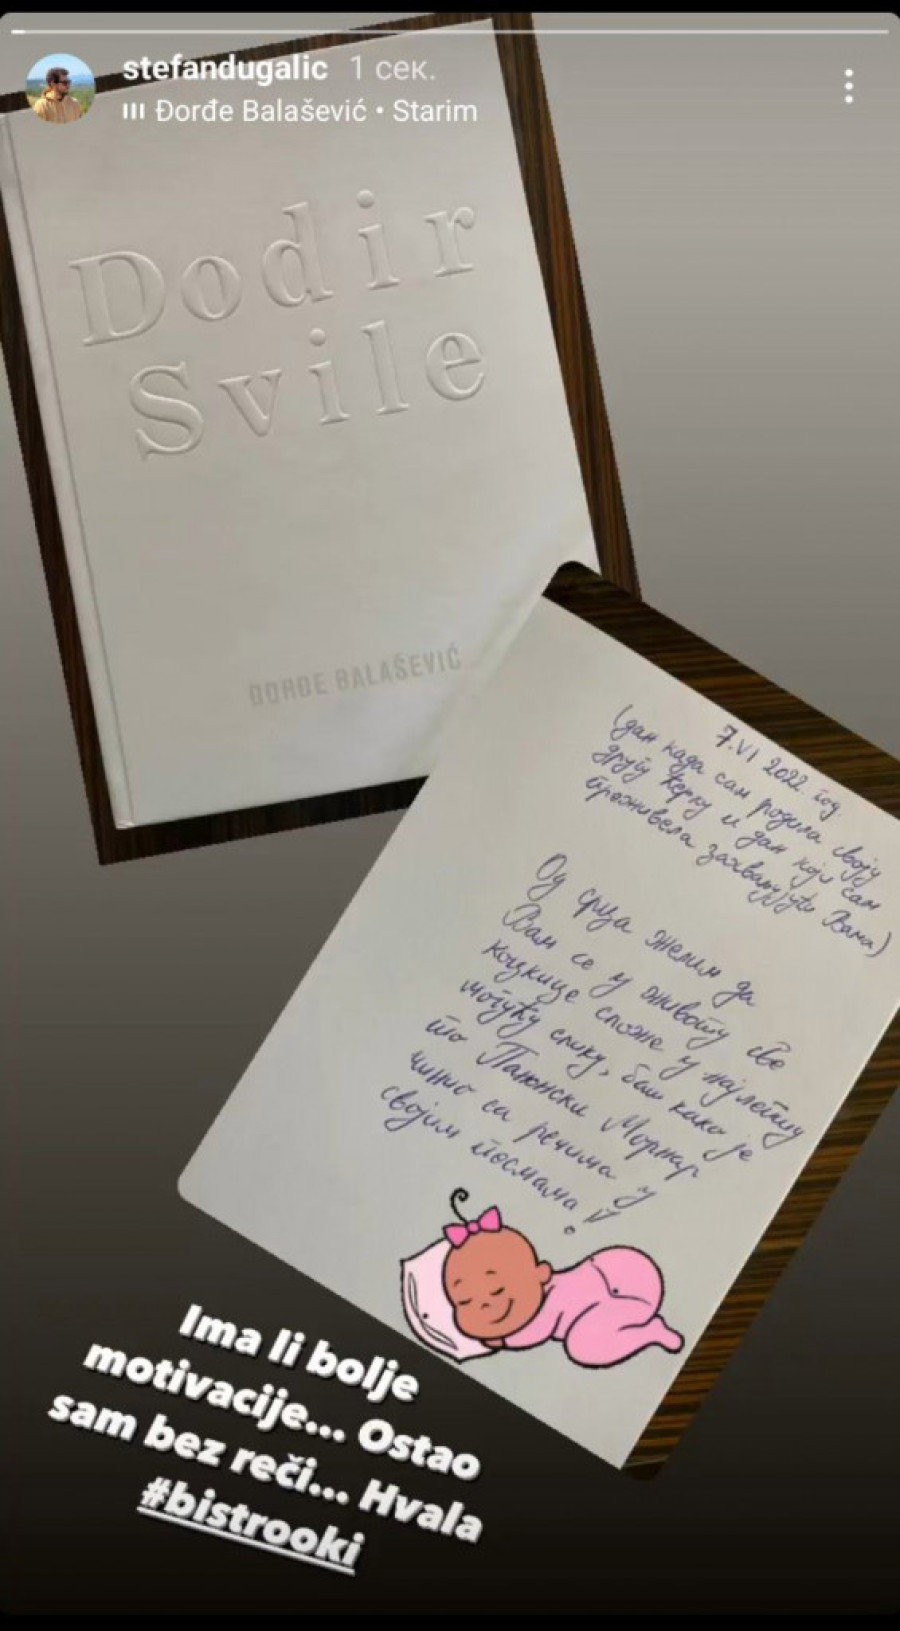 stefandugalic 1 сек.
Đorđe Balašević • Starim
Dodir
Svile
ĐORĐE BALAŠEVIĆ
7. VI 2022. год.
(дан када сам родила своју
другу ћерку и дан који сам
преживела захваљујући Вама)
Од срца желим да
Вам се у животу све
коцкице сложе у најлепшу
могућу слику, баш како је
то Панонски Морнар
чинио са речима у
својим песмама!
Ima li bolje
motivacije... Ostao
sam bez reči... Hvala
#bistrooki